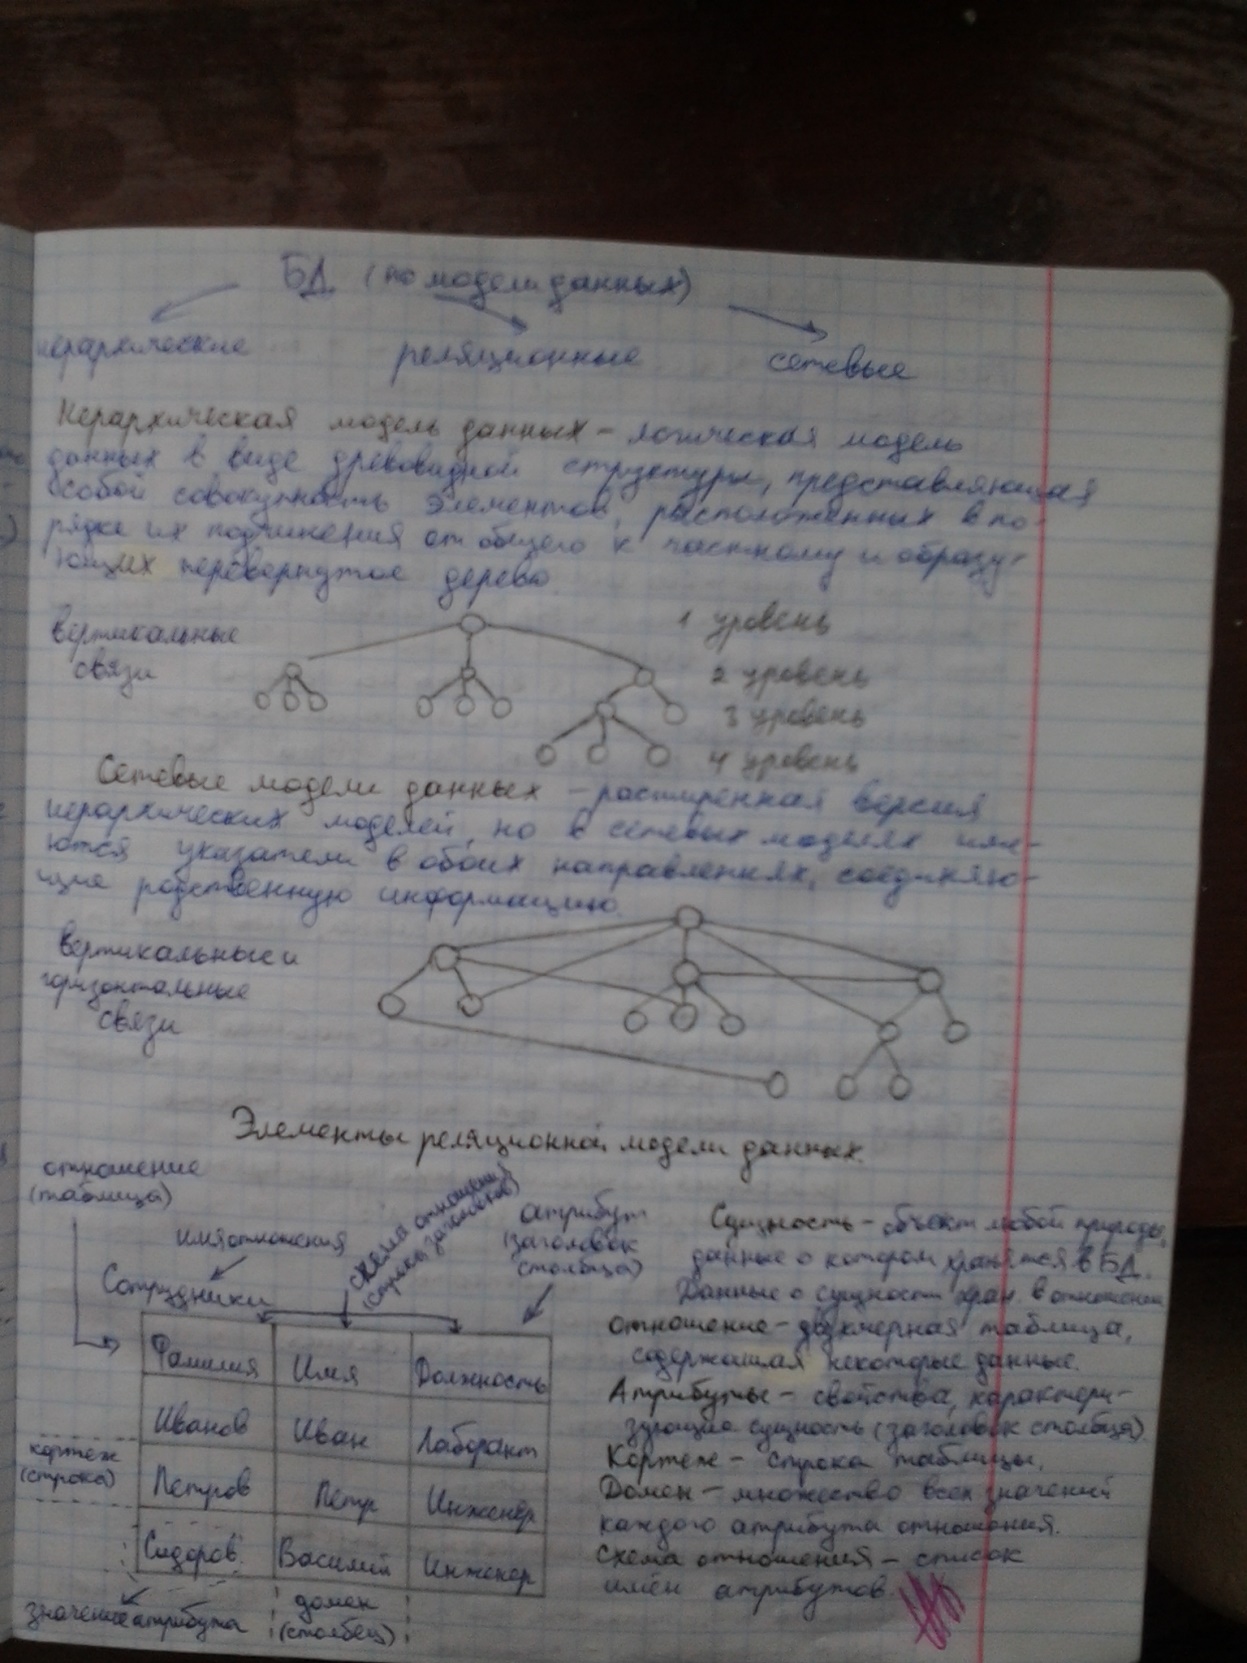 БД (по модели данных)
иерархические реляционные сетевые
Иерархическая модель данных – логическая модель
данных в виде древовидной структуры, представляющая
собой совокупность элементов, расположенных в по-
рядке их подчинения от общего к частному и образу-
ющих перевернутое дерево
вертикальные
связи
1 уровень
2 уровень
3 уровень
4 уровень
Сетевые модели данных – расширенная версия
иерархических моделей, но в сетевых моделях име-
ются указатели в обоих направлениях, соединяю-
щие родственную информацию.
вертикальные и
горизонтальные
связи
Элементы реляционной модели данных.
отношение
(таблица)
имя отношения
Сотрудники
схема отношения
(строка заголовков)
атрибут
(заголовок
столбца)
Фамилия Имя Должность
Иванов Иван Лаборант
Петров Петр Инженер
Сидоров Василий Инженер
кортеж
(строка)
значение атрибута
домен
(столбец)
Сущность – объект любой природы,
данные о котором хранятся в БД.
Данные о сущности хран. в отношении
отношение – двухмерная таблица,
содержащая некоторые данные.
Атрибуты – свойства, характери-
зующие сущность (заголовок столбца)
Кортеж – строка таблицы.
Домен – множество всех значений
каждого атрибута отношения.
Схема отношения – список
имён атрибутов.